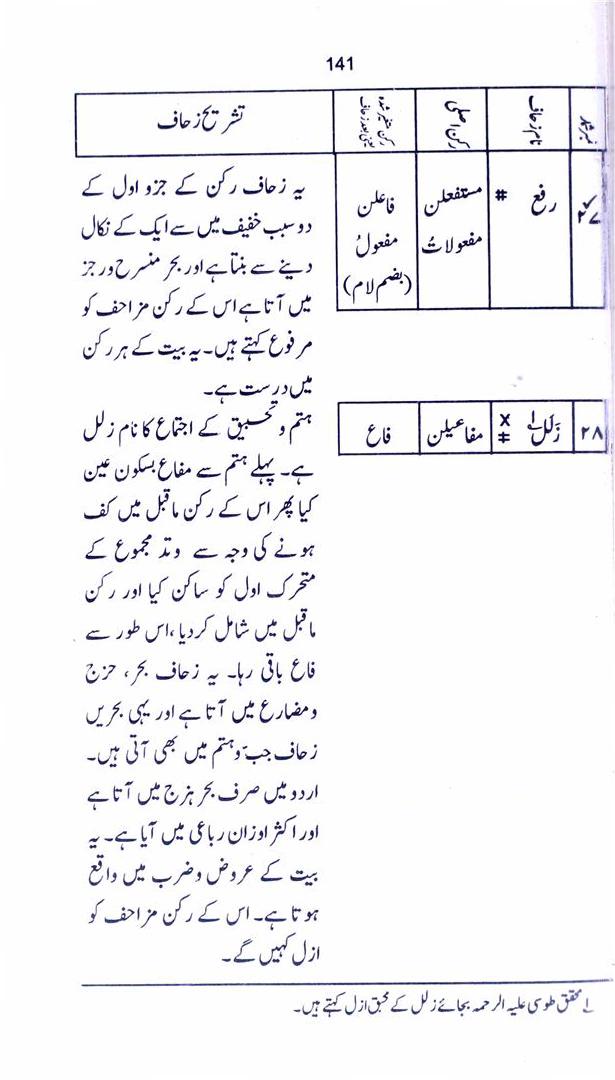 141
نمبر شمار
نام زحاف
رکن اصلی
رکن متغیر شدہ
یعنی بعد زحاف
تشریح زحاف
۲۷
رفع #
مستفعلن
مفعولاتُ
فاعلن
مفعولُ
(بضم لام)
یہ زحاف رکن کے جزو اول کے
دو سبب خفیف میں سے ایک کے نکال
دینے سے بنتا ہے اور بحر منسرح و رجز
میں آتا ہے اس کے رکن مزاحف کو
مرفوع کہتے ہیں۔ یہ بیت کے ہر رکن
میں درست ہے۔
۲۸
زَلَل۱ X
‡
مفاعیلن
فاع
ہتم و تحبیق کے اجتماع کا نام زلل
ہے۔ پہلے ہتم سے مفاع بسکون عین
کیا پھر اس کے رکن ماقبل میں کف
ہونے کی وجہ سے وتد مجموع کے
متحرک اول کو ساکن کیا اور رکن
ماقبل میں شامل کردیا، اس طور سے
فاع باقی رہا۔ یہ زحاف بحر، حزج
و مضارع میں آتا ہے اور یہی بحریں
زحاف جبّ و ہتم میں بھی آتی ہیں۔
اردو میں صرف بحر ہزج میں آتا ہے
اور اکثر اوزان رباعی میں آیا ہے۔ یہ
بیت کے عروض و ضرب میں واقع
ہوتا ہے۔ اس کے رکن مزاحف کو
ازل کہیں گے۔
۱ محقق طوسی علیہ الرحمہ بجائے زلل کے محبق ازل کہتے ہیں۔